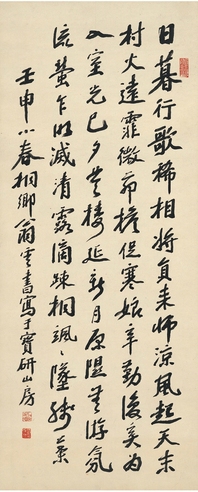 日暮行歌稀相將負耒師涼風起天末
村火遠霏微茆檐促寒娘辛勤復奚為
入室光已夕虛樓延新月原隰無游氛
流螢乍明滅清露滴疎桐颯颯墜殘葉
壬申小春桐鄉翁 書寫于寶研山房